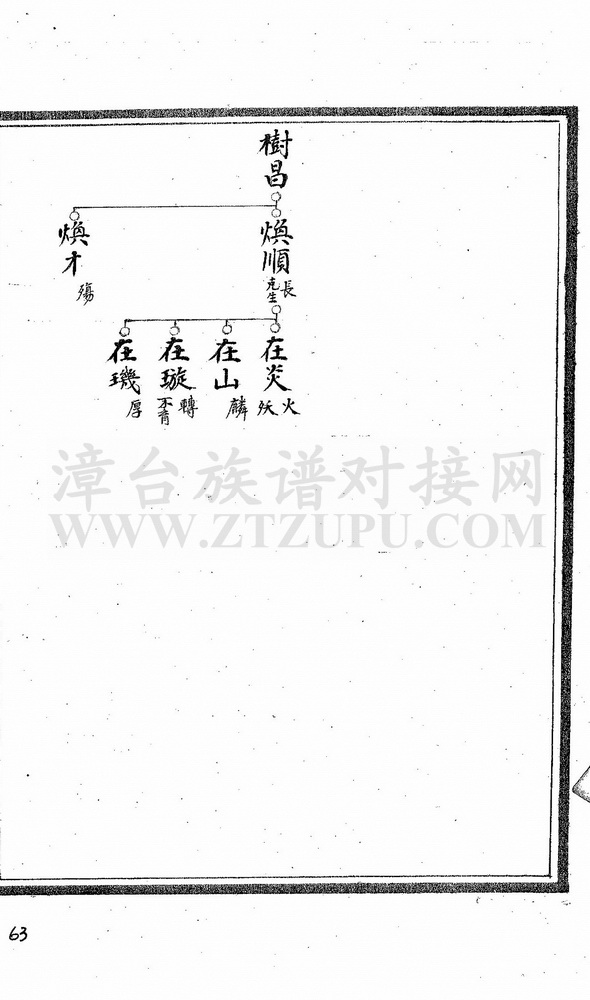 樹昌
煥順
長
克生
煥才
殤
在炎
火
妖
在山
麟
在璇
轉
不育
在璣
厚
漳台族谱对接网
WWW.ZTZUPU.COM
63